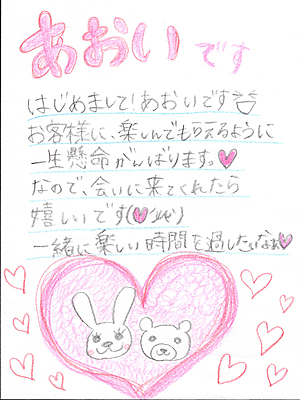 あおいです
はじめまして!あおいです
お客様に、楽しんでもらえるように
一生懸命がんばりますっ♥
なので、会いに来てくれたら
嬉しいです
一緒に楽しい時間を過したいなぁ♥